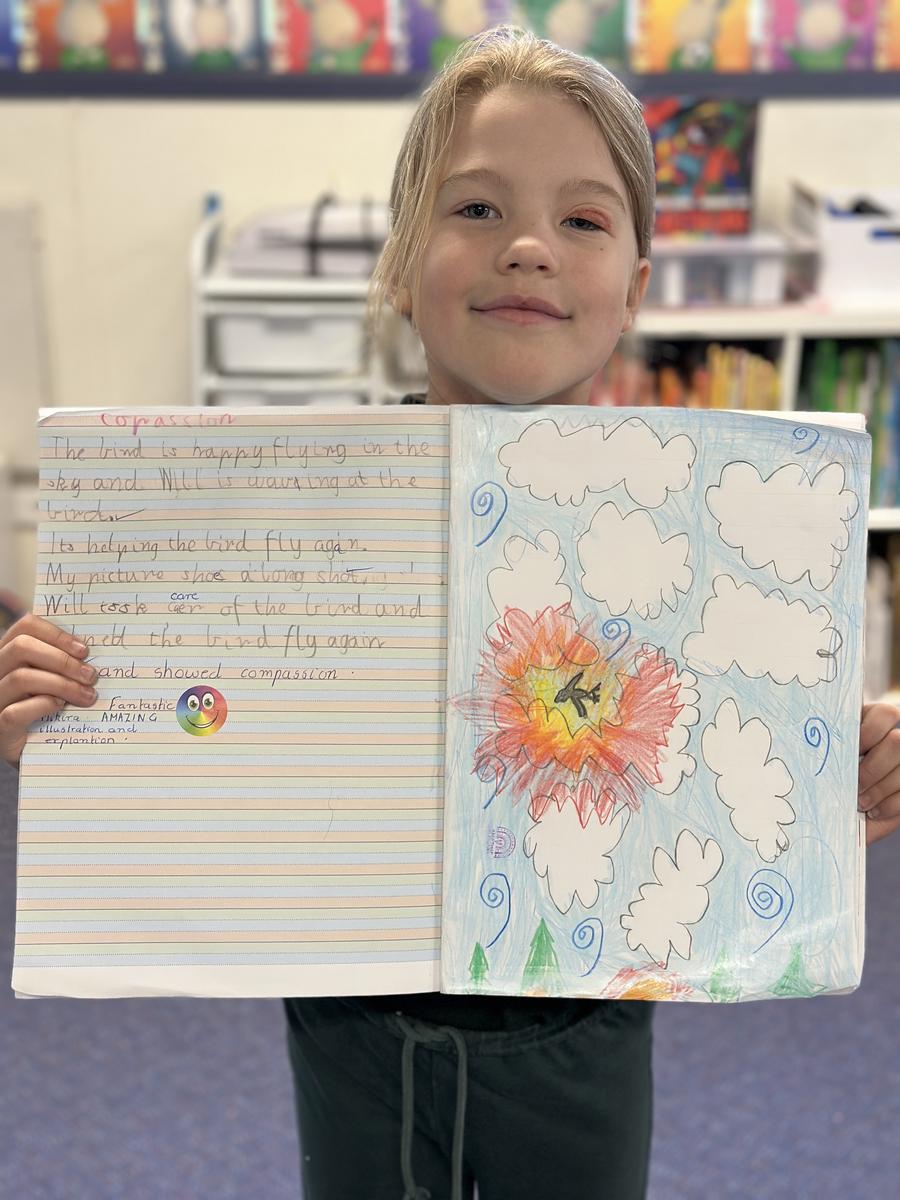 copassion
The bird is happy flying in the
sky and Will is waving at the
bird.
Its helping the bird fly again.
My picture shos a long shot
care
Will took of the bird and
the bird fly again
and showed compassion.
Fantastic
AMAZING
illustration and
explantion.